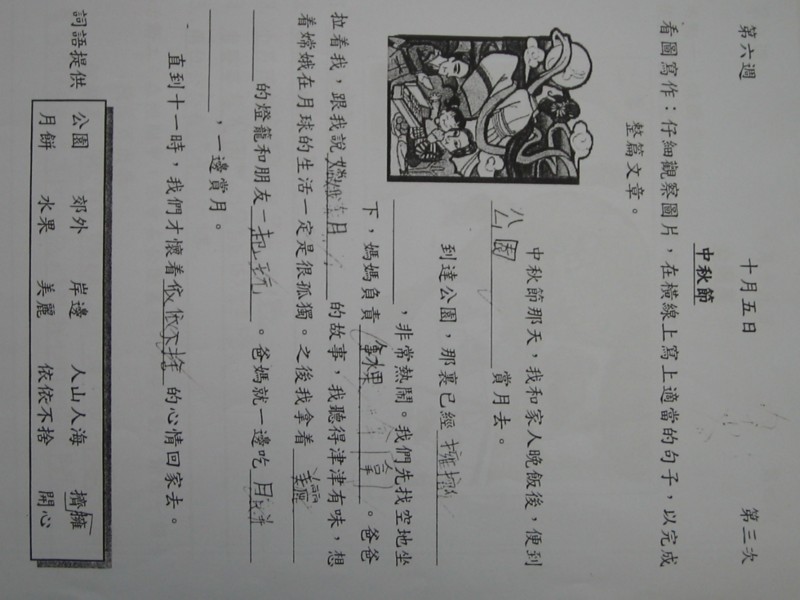 第六週 十月五日 第三次
中秋節
看圖寫作：仔細觀察圖片，在橫線上寫上適當的句子，以完成
整篇文章。
中秋節那天，我和家人晚飯後，便到
公園 賞月去。
到達公園，那裏已經
，非常熱鬧。我們先找空地坐
下，媽媽負責拿水果 。爸爸
拉着我，跟我說嫦娥奔月的故事，我聽得津津有味，想
着嫦娥在月球的生活一定是很孤獨。之後我拿着美麗
的燈籠和朋友一起玩。爸媽就一邊吃月餅
，一邊賞月。
直到十一時，我們才懷着依依不捨的心情回家去。
詞語提供
公園 郊外 岸邊 人山人海 擠擁
月餅 水果 美麗 依依不捨 開心